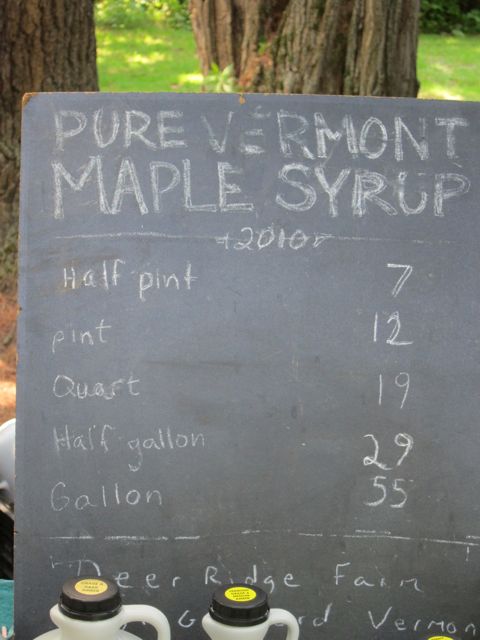 PURE VERMONT
MAPLE SYRUP
2010
Half pint 7
pint 12
Quart 19
Half gallon 29
Gallon 55
Deer Ridge Farm
Vermon